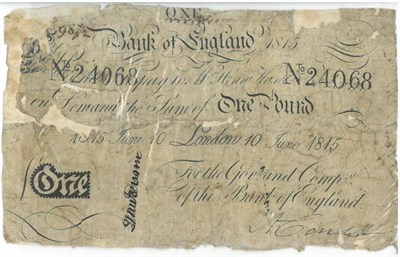 ONE
Bank of England 1815
No 24068 No 24068
on Demand the Sum of One Pound
1815 June 10 London 10 June 1815
For the Govr. and Compa.
of the Bank of England
One